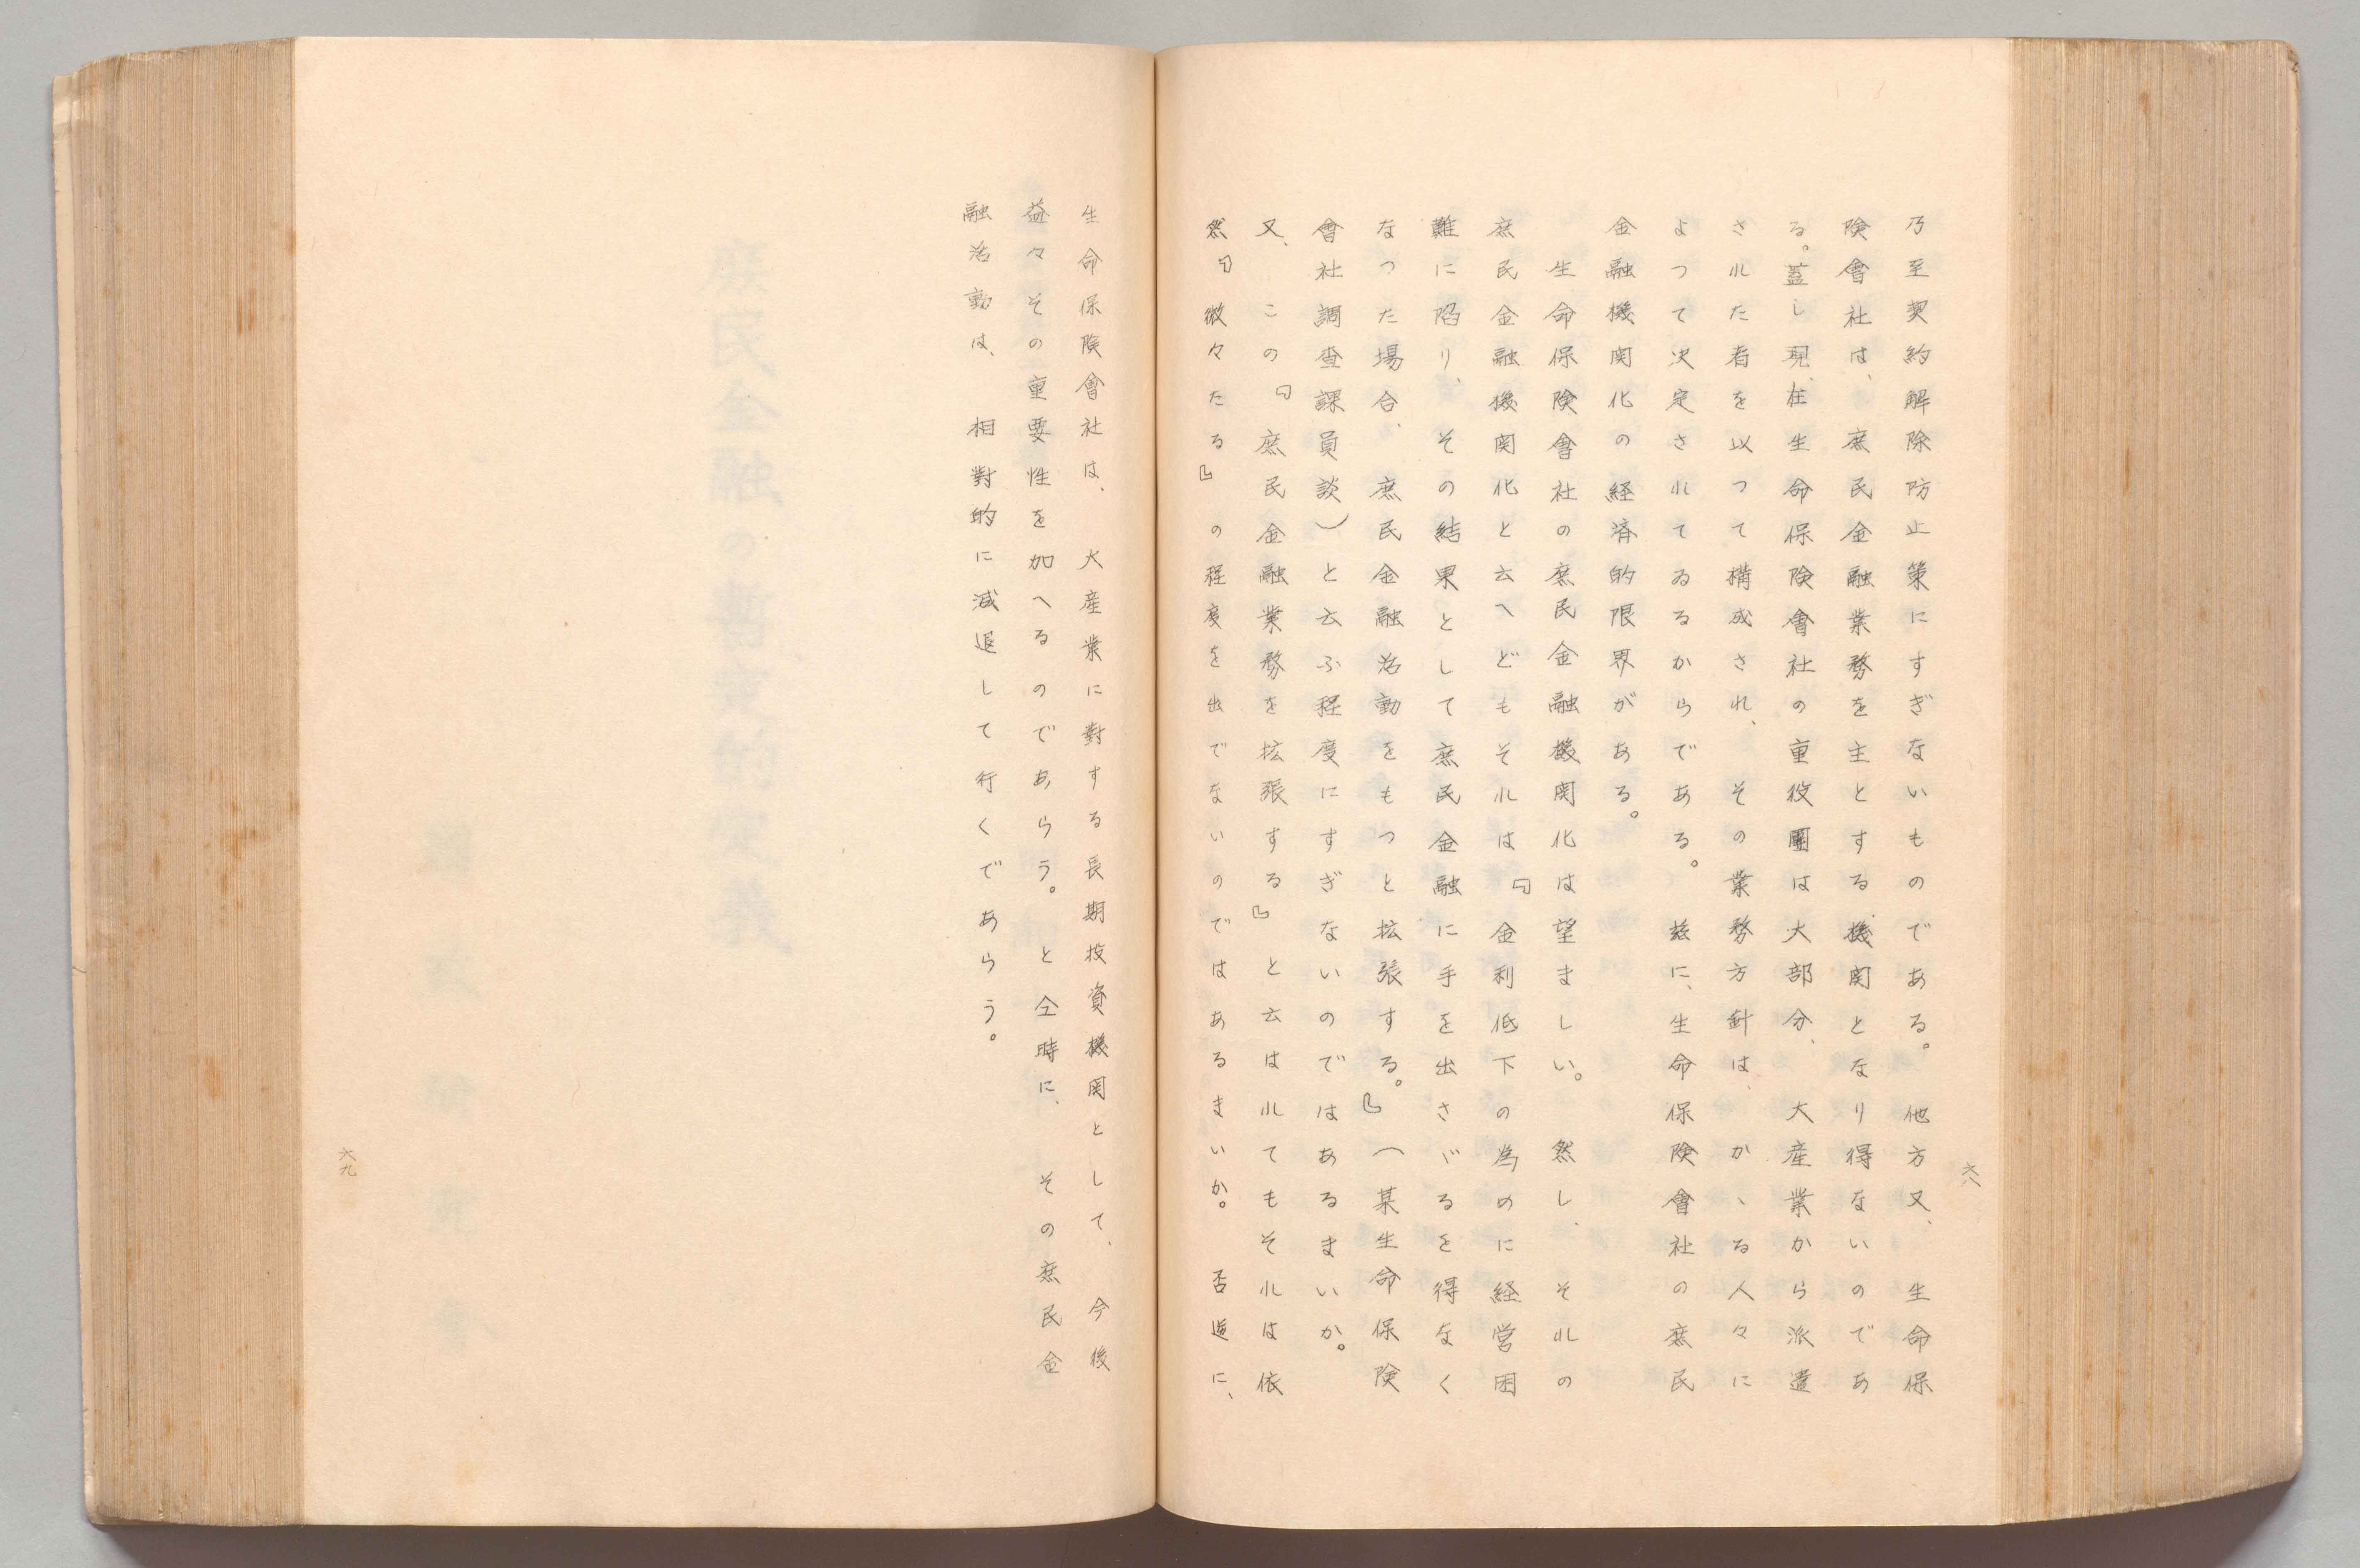 乃至契約解除防止策にすぎないものである。他方又、生命保
険會社は、庶民金融業務を主とする機関となり得ないのであ
る。蓋し現、在生命保険會社の重役團は大部分、大産業から派遣
された者を以つて構成され、その業務方針は、かゝる人々に
よつて決定されてゐるからである。茲に、生命保険會社の庶民
金融機関化の経済的限界がある。
生命保険會社の庶民金融機関化は望ましい。然し、それの
庶民金融機関化と云へどもそれは『金利低下の為めに経営困
難に陷り、その結果として庶民金融に手を出さゞるを得なく
なつた場合、庶民金融活動をもつと拡張する。』(某生命保険
會社調査課員談)と云ふ程度にすぎないのではあるまいか。
又、この『庶民金融業務を拡張する』と云はれてもそれは依
然『微々たる』の程度を出でないのではあるまいか。否逆に、
六八
生命保険會社は、大産業に對する長期投資機関として、今後
益々その重要性を加へるのであらう。と仝時に、その庶民金
融活動は、相對的に減退して行くであらう。
六九